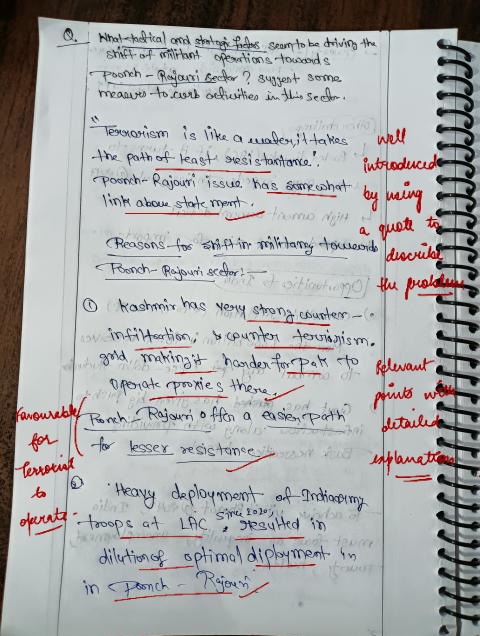 Q. What tactical and strategic factors seem to be driving the
shift of militant operations towards
Poonch - Rajouri sector? suggest some
measures to curb activities in this sector.
"Terrorism is like a water, it takes
the path of least resistantance".
Poonch-Rajouri issue has somewhat
link above statement.
Reasons for shift in militancy towards
Poonch-Rajouri sector:
① Kashmir has very strong counter-
infiltration, & counter terrorism.
grid making it harder for Pak to
operate proxies there.
Ponch-Rajouri offer a easier path
for lesser resistance
② Heavy deployment of Indian army
since 2020,
troops at LAC, resulted in
dilution of optimal diployment in
in Poonch - Rajouri
well
introduced
by using
a quote to
describe
the problem
Relevant
points with
detailed
explanation
Favourable
for
Terrorist
to
operate-